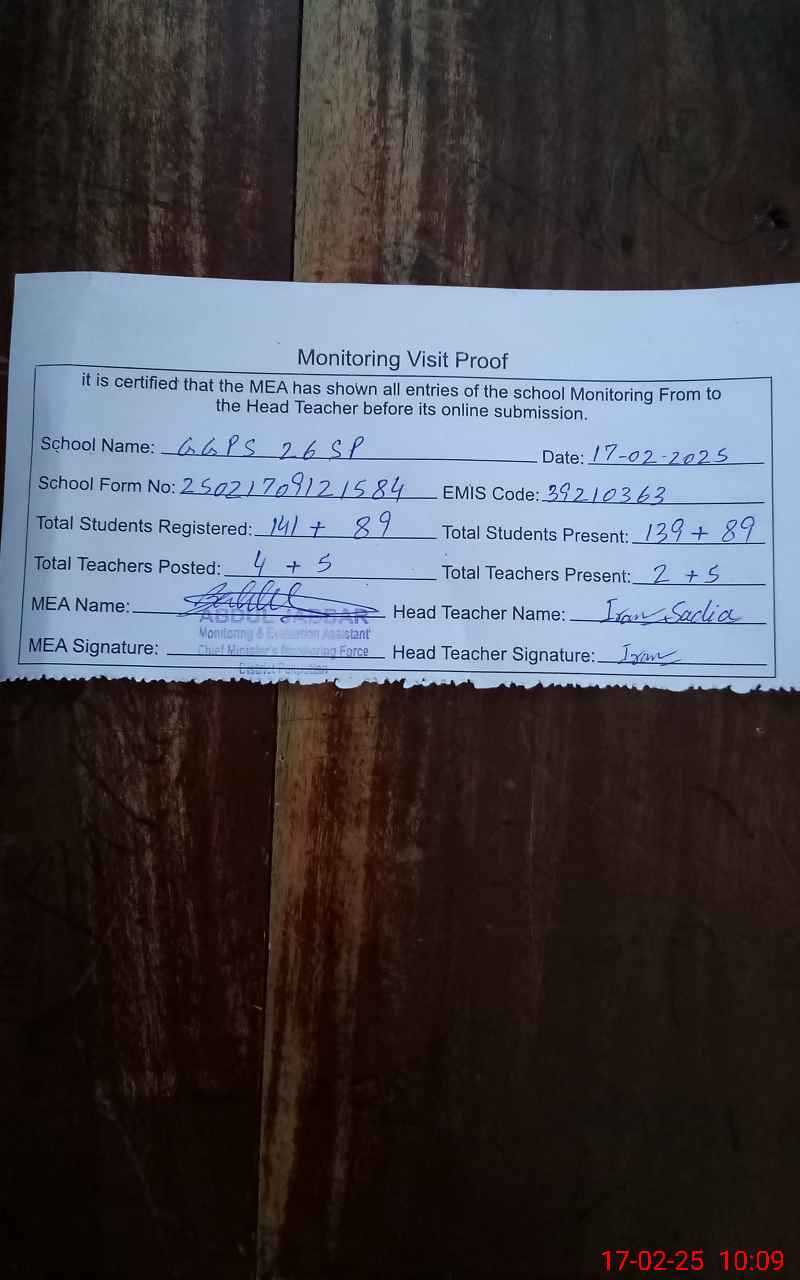 Monitoring Visit Proof
it is certified that the MEA has shown all entries of the school Monitoring From to
the Head Teacher before its online submission.
School Name: GGPS 26 SP Date: 17-02-2025
School Form No: 25021709121584 EMIS Code: 39210363
Total Students Registered: 141 + 89 Total Students Present: 139 + 89
Total Teachers Posted: 4 + 5 Total Teachers Present: 2 + 5
MEA Name: ABDUL JABBAR Head Teacher Name: Iram Sadia
Monitoring & Evaluation Assistant
MEA Signature: Chief Minister's Monitoring Force Head Teacher Signature: Iram
District Pakpattan
17-02-25 10:09